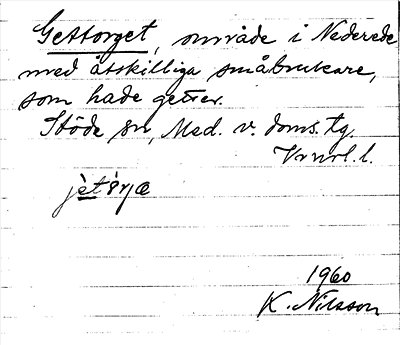 Getttorget, område i Nederede
med åtskilliga småbrukare,
som hade getter.
Stöde sn, Med. v. doms. tg.
Vrurl. l.
1960
K. Nilsson